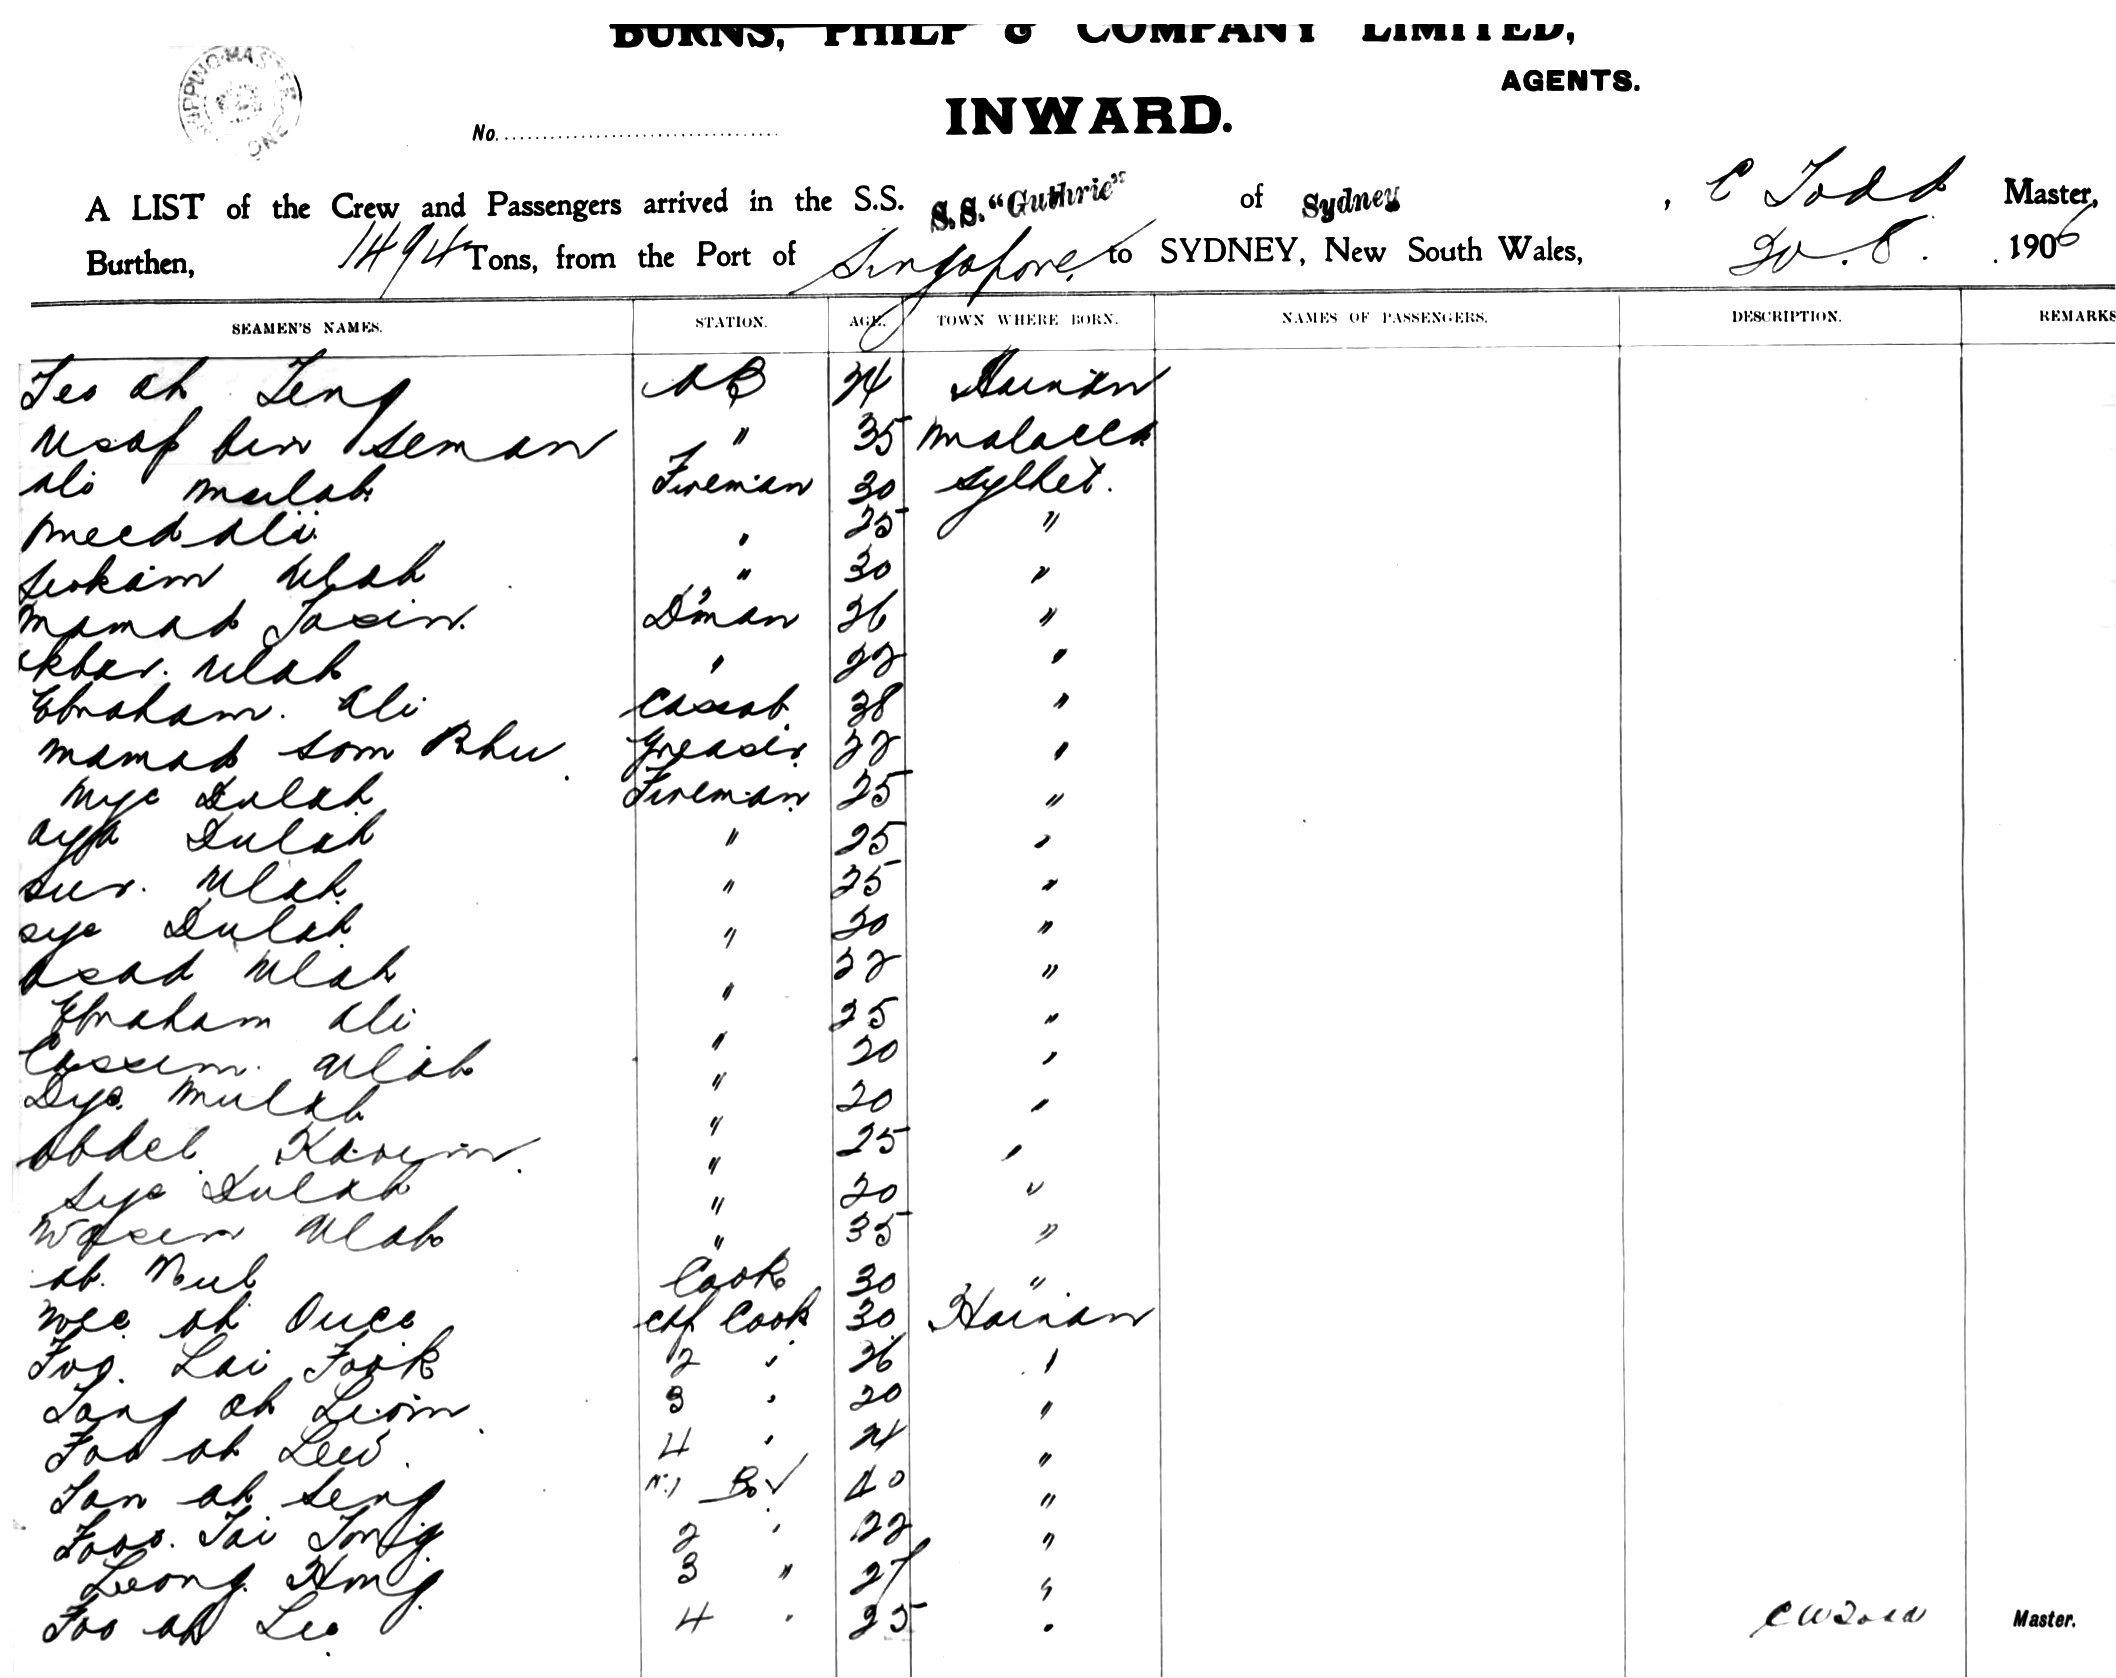 BURNS, PHILP & COMPANY LIMITED,
AGENTS.
SHIPPING MASTER
No.
INWARD.
A LIST of the Crew and Passengers arrived in the S.S. S.S. "Guthrie" of Sydney, C Todd Master,
Burthen, 1494 Tons, from the Port of Singapore to SYDNEY, New South Wales, 30.8. 1906
SEAMEN'S NAMES. STATION. AGE. TOWN WHERE BORN. NAMES OF PASSENGERS. DESCRIPTION. REMARKS
Teo ah Teng AB 24 Hainan
Usof bin Seman " 35 Malacca
Ali Mulah Fireman 30 Sylhet.
Alii " 25 "
Ulah " 30 "
Mamad Tasin. D'man 26 "
Ulah " 22 "
Ebraham. Ali Cassab 38 "
Mamad Som Greaser 32 "
Mya Dulah Fireman 25 "
Aya Dulah " 25 "
Sur. Ulah " 25 "
Dulah " 30 "
Asad Ulah " 22 "
Ebraham Ali " 25 "
Cassim. Ulah " 20 "
Dya. Mulah " 20 "
Abdel Karim. " 25 "
Sya Dulah " 20 "
Wasim Ulah " 35 "
Ab. Cook 30 "
Wee ah Quee Chf Cook 30 Hainan
Foo. Lai Fook 2 " 26 "
Tang ah 3 " 20 "
Foo ah Lew 4 " 24 "
Tan ah Seng No 1 Boy 40 "
Fooo. Tai Tong 2 " 22 "
Leong Hong 3 " 27 "
Foo ah Lee 4 " 25 "
C W Todd Master.